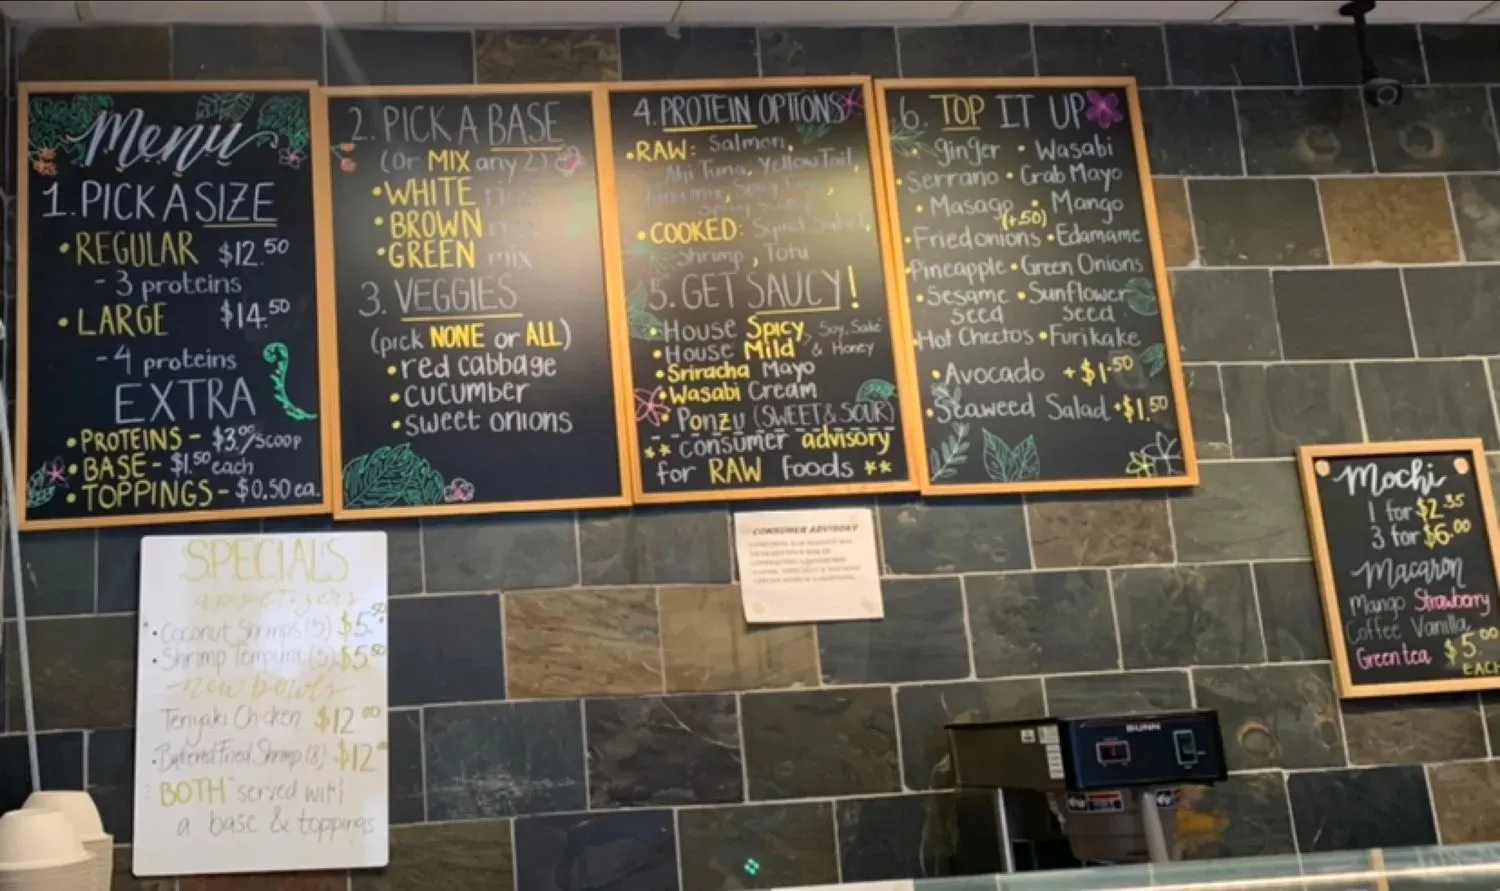 Menu
1. PICK A SIZE
• REGULAR $12.50
- 3 proteins
• LARGE $14.50
- 4 proteins
EXTRA
• PROTEINS - $3.00/scoop
• BASE - $1.50 each
• TOPPINGS - $0.50 ea.
2. PICK A BASE
(Or MIX any 2)
• WHITE rice
• BROWN
• GREEN mix
3. VEGGIES
(pick NONE or ALL)
• red cabbage
• cucumber
• sweet onions
4. PROTEIN OPTIONS
• RAW: Salmon,
Ahi Tuna, Yellow Tail,
• COOKED:
Shrimp, Tofu
5. GET SAUCY!
• House Spicy
• House Mild
Soy, Sake
& Honey
• Sriracha Mayo
• Wasabi Cream
• Ponzu (SWEET & SOUR)
** consumer advisory
for RAW foods **
6. TOP IT UP
• ginger • Wasabi
• Serrano • Crab Mayo
• Masago • Mango
(+.50)
• Fried onions • Edamame
• Pineapple • Green Onions
• Sesame Seed • Sunflower Seed
• Hot Cheetos • Furikake
• Avocado + $1.50
• Seaweed Salad + $1.50
SPECIALS
appetizers
• Coconut Shrimps (5) $5.50
• Shrimp Tempura (5) $5.50
new bowls
Teriyaki Chicken $12.00
• Battered Fried Shrimp (8) $12
BOTH served with
a base & toppings
CONSUMER ADVISORY
Mochi
1 for $2.35
3 for $6.00
Macaron
Mango Strawberry
Coffee Vanilla
Green tea $5.00
EACH
BUNN